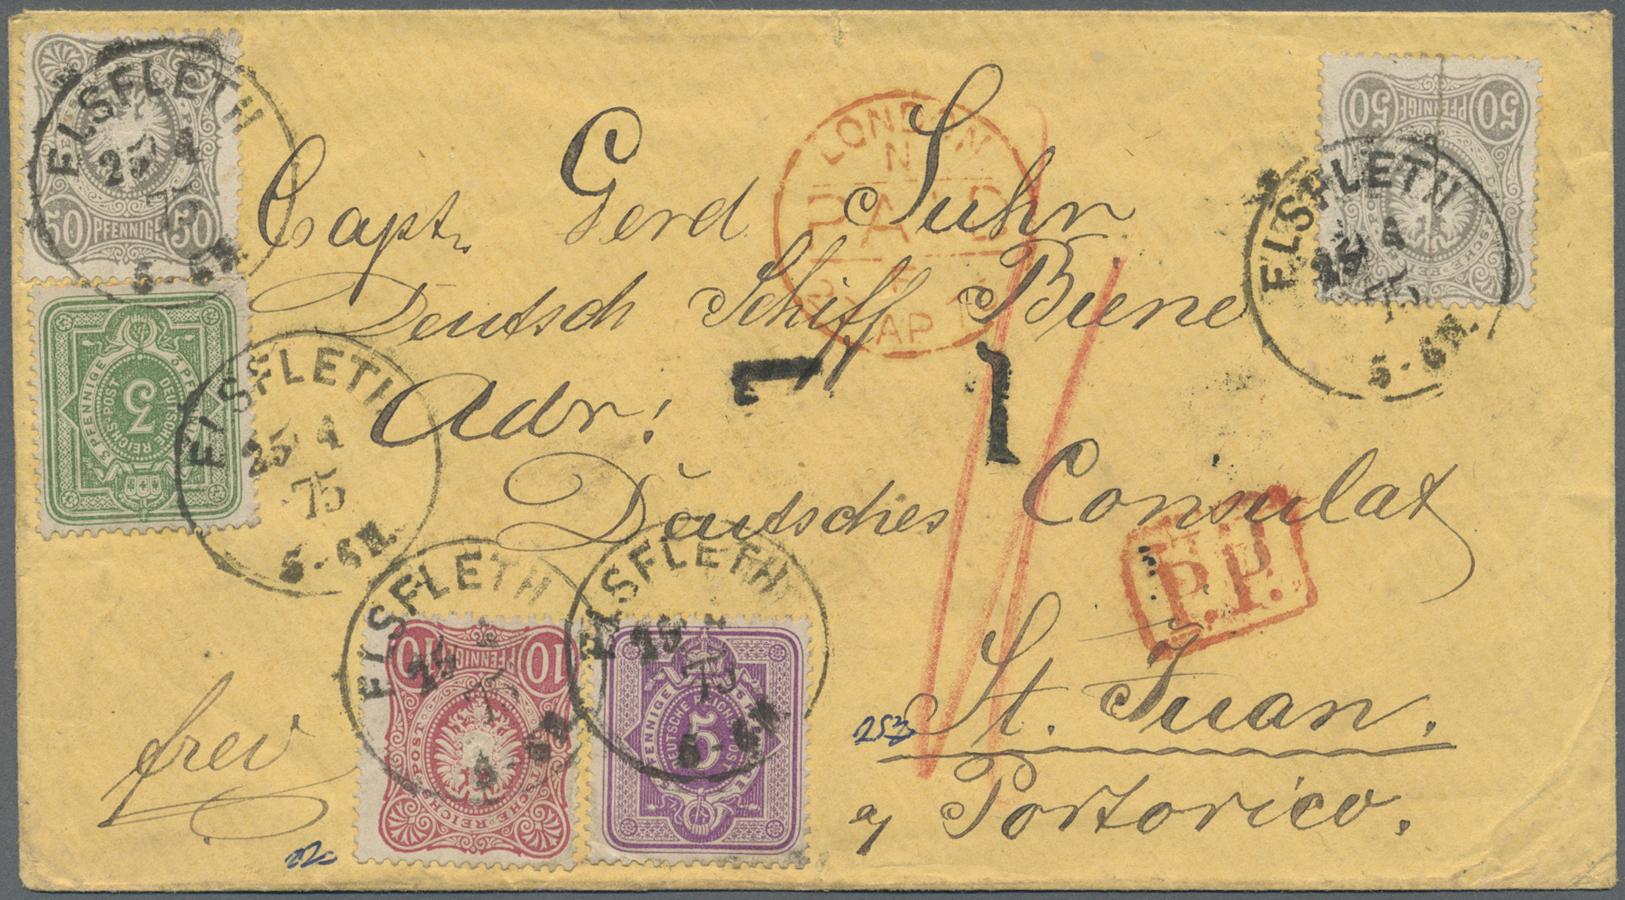 Capt. Gerd Suhr
Deutsch Schiff Biene
Adr:
Deutsches Consulat
St. Juan.
a/ Portorico.
frei
ELSFLETH
25 4
75
5-6N.
50 PFENNIGE 50
ELSFLETH
25 4
75
5-6N.
3 PFENNIGE
DEUTSCHE REICHS-POST
3
ELSFLETH
25 4
75
5-6N.
10 PFENNIGE 10
ELSFLETH
25 4
75
5-6N.
5
ELSFLETH
25 4
75
5-6N.
50 PFENNIGE 50
LONDON
N
PAID
AP
1
1
P.P.
253